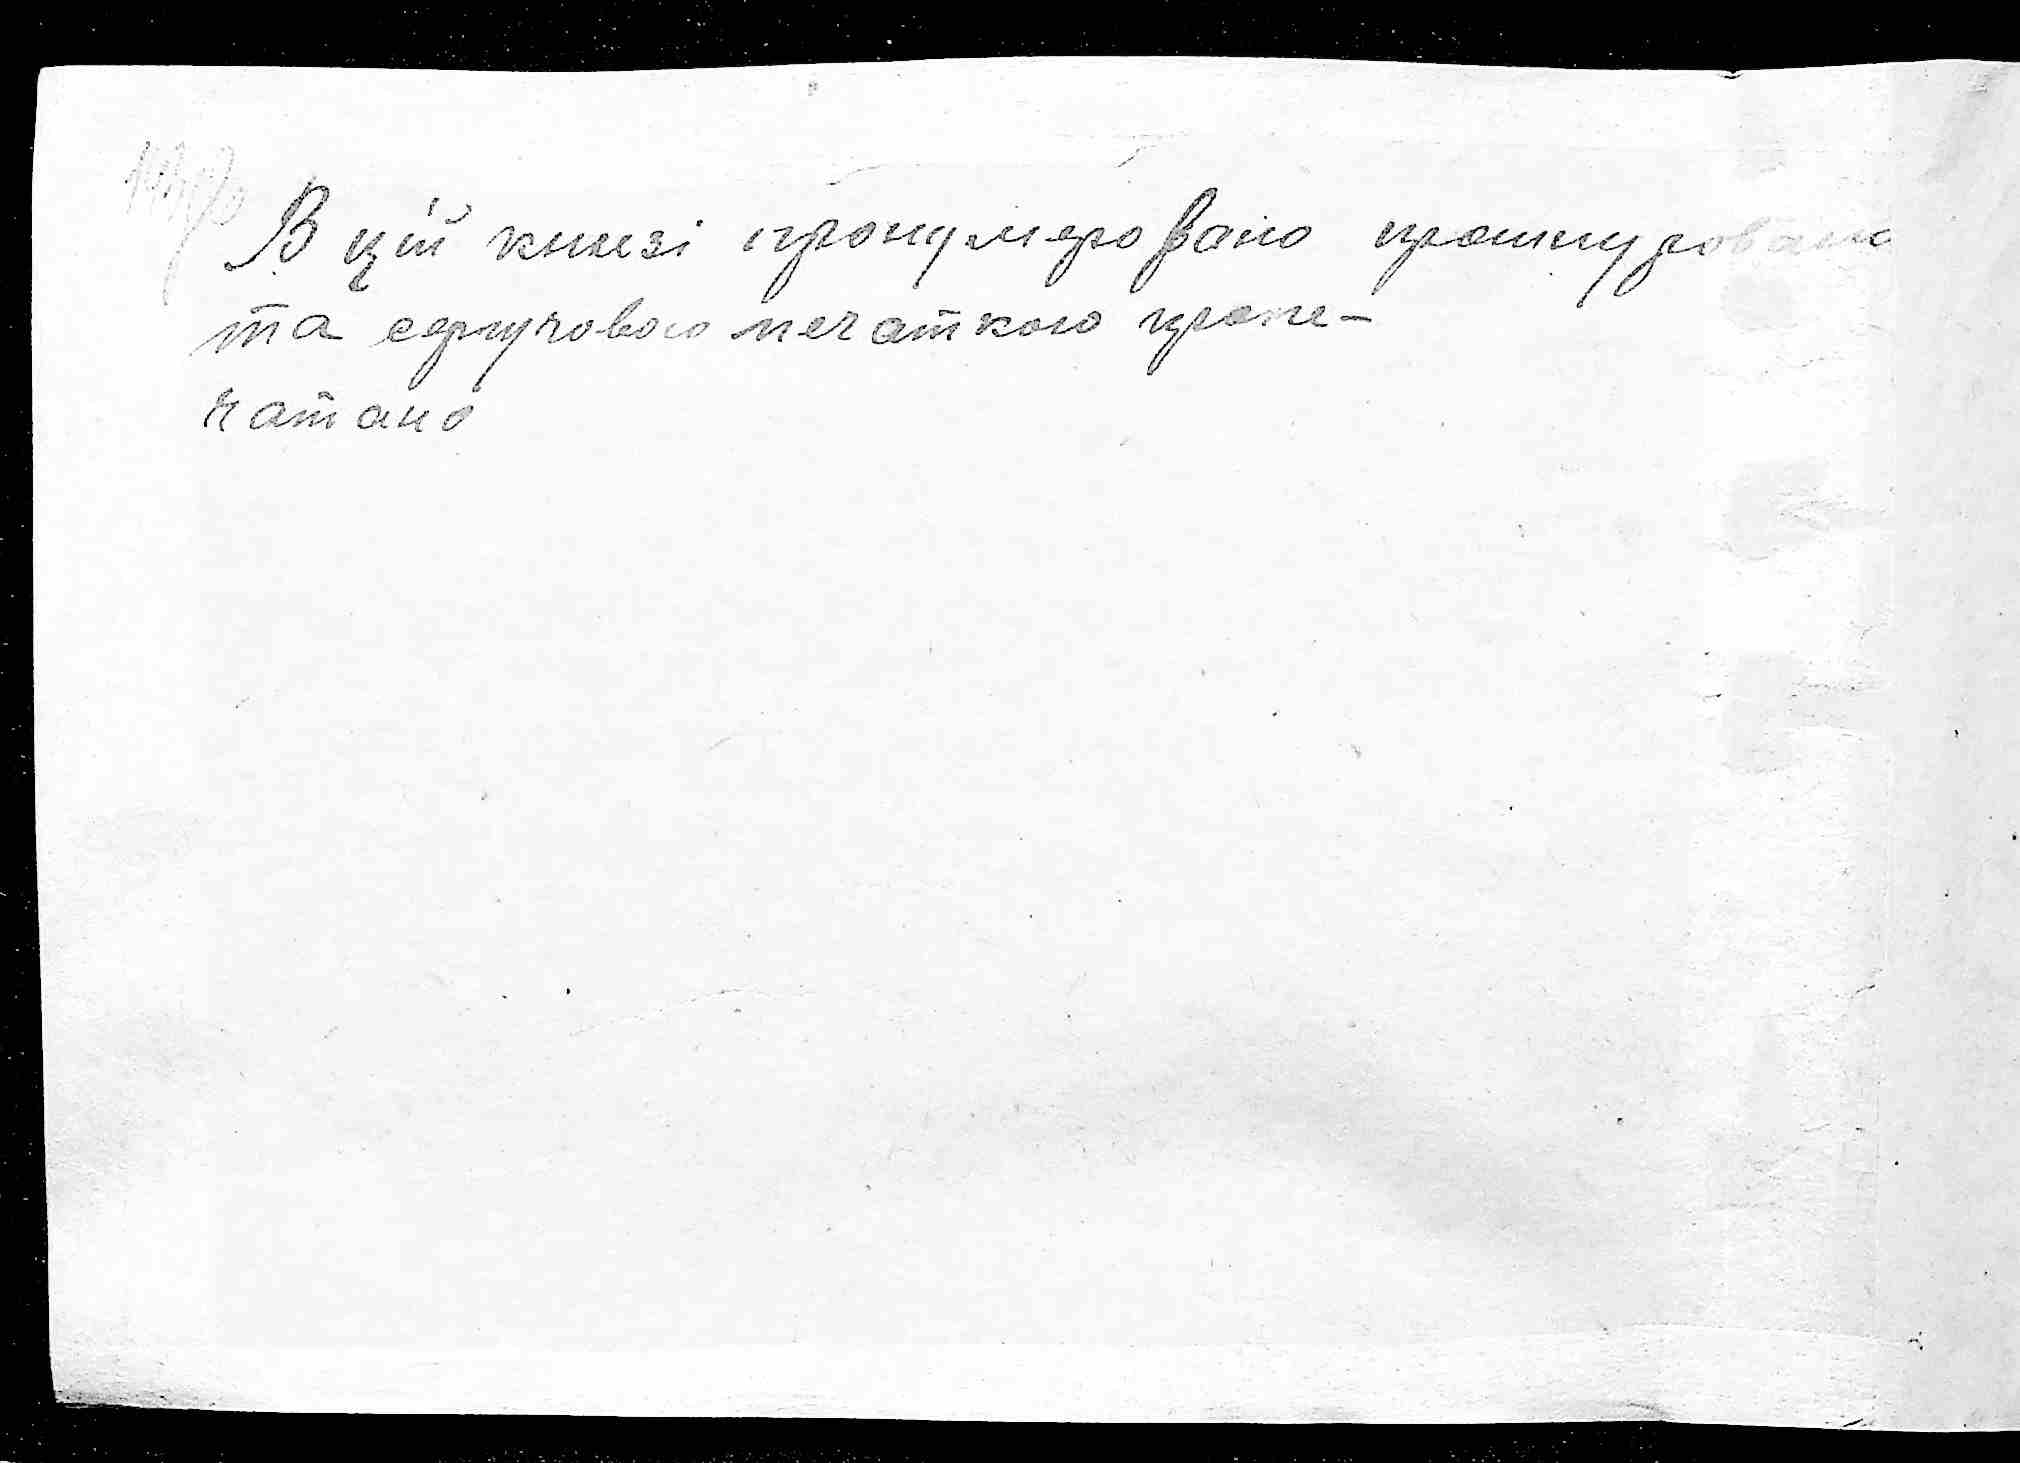 В цій книзі пронумеровано прошнуровано
та сергучовою печаткою пропе-
чатано